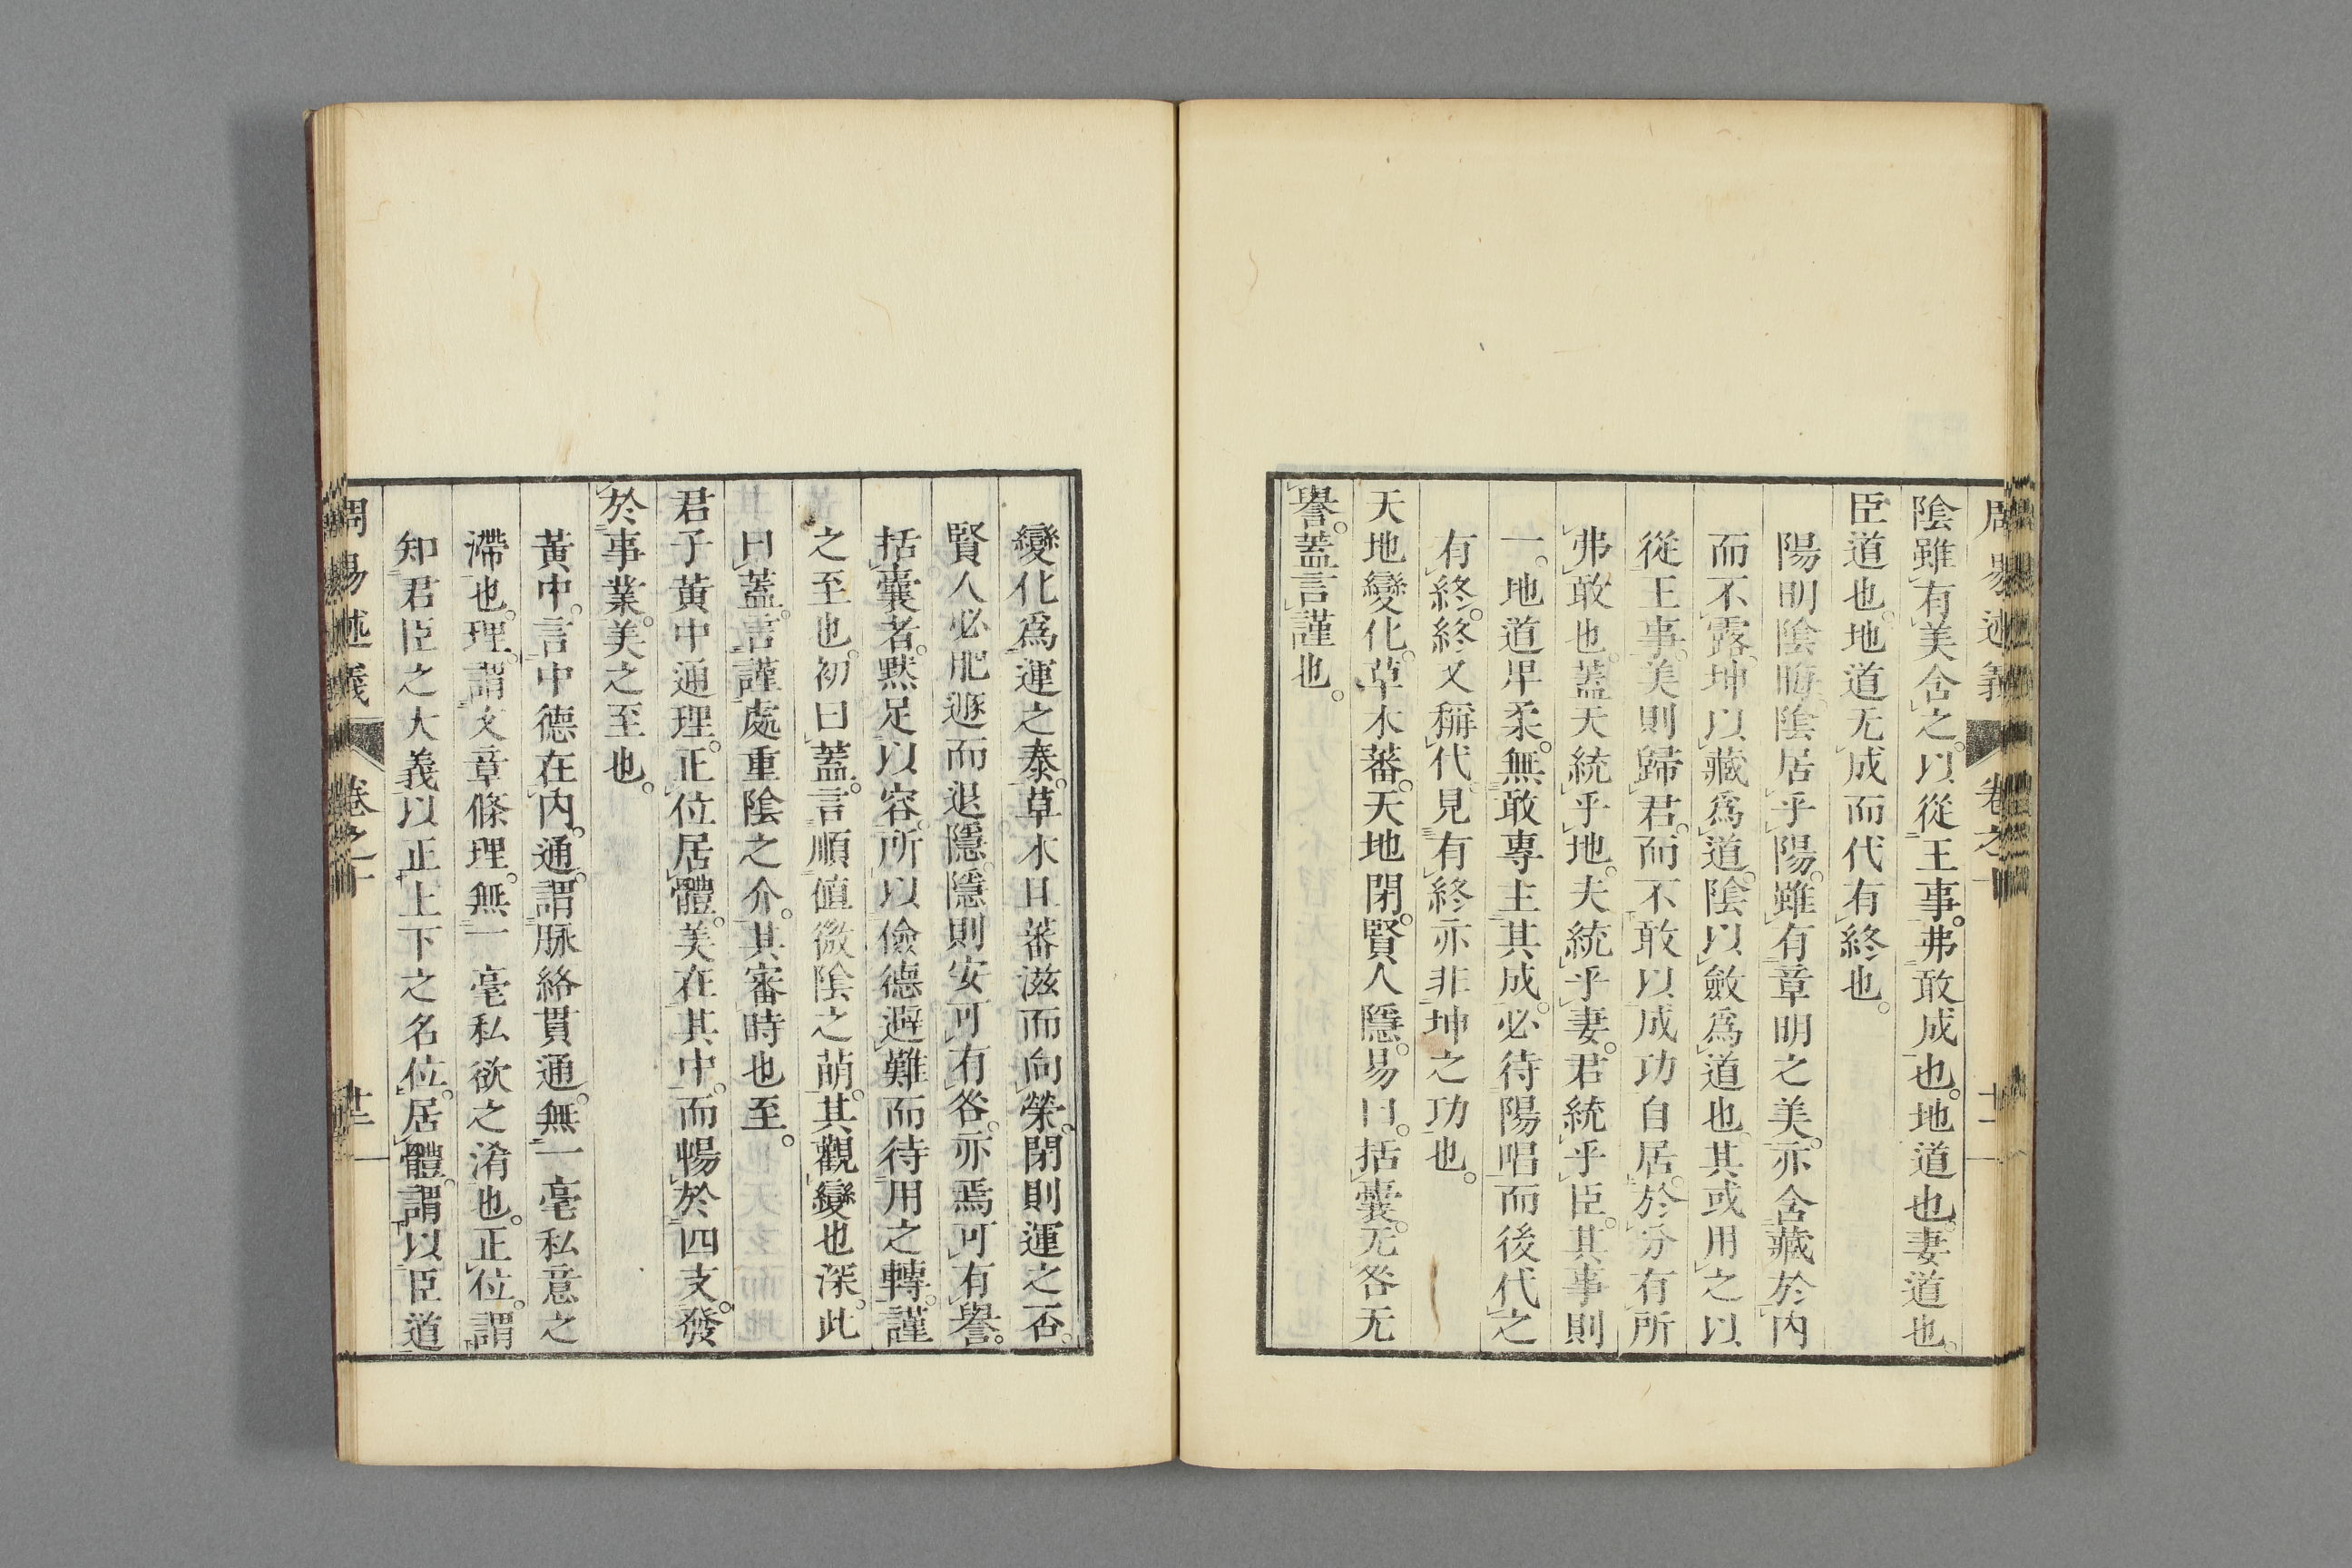 周易述義 卷之十 十二
陰雖有美含之。以從王事。弗敢成也。地道也。妻道也。
臣道也。地道无成而代有終也。
陽明陰晦。陰居乎陽。雖有章明之美。亦含藏於內
而不露。坤以藏爲道。陰以斂爲道也。其或用之以
從王事。美則歸君。而不敢以成功自居。於分有所
弗敢也。蓋天統乎地。夫統乎妻。君統乎臣。其事則
一。地道卑柔。無敢專主其成。必待陽唱而後代之
有終。終又稱代見有終亦非坤之功也。
天地變化。草木蕃。天地閉。賢人隱。易曰。括囊。无咎无
譽。蓋言謹也。
變化爲運之泰。草木日蕃滋而向榮。閉則運之否。
賢人必肥遯而退隱。隱則安可有咎。亦焉可有譽。
括囊者。黙足以容。所以儉德避難而待用之轉。謹
之至也。初曰蓋。言順値微陰之萌。其觀變也深。此
曰蓋。言謹處重陰之介。其審時也至。
君子黃中通理。正位居體。美在其中。而暢於四支。發
於事業。美之至也。
黃中。言中德在內。通。謂脉絡貫通。無一毫私意之
滯也。理。謂文章條理。無一毫私欲之淆也。正位。謂
知君臣之大義以正上下之名位。居體。謂以臣道
周易述義 卷之十